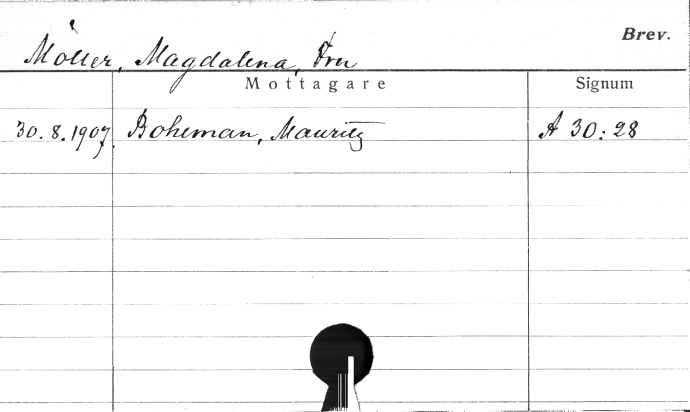 Brev.
Möller, Magdalena, Fru
Mottagare Signum
30.8.1907. Boheman, Mauritz A 30:28